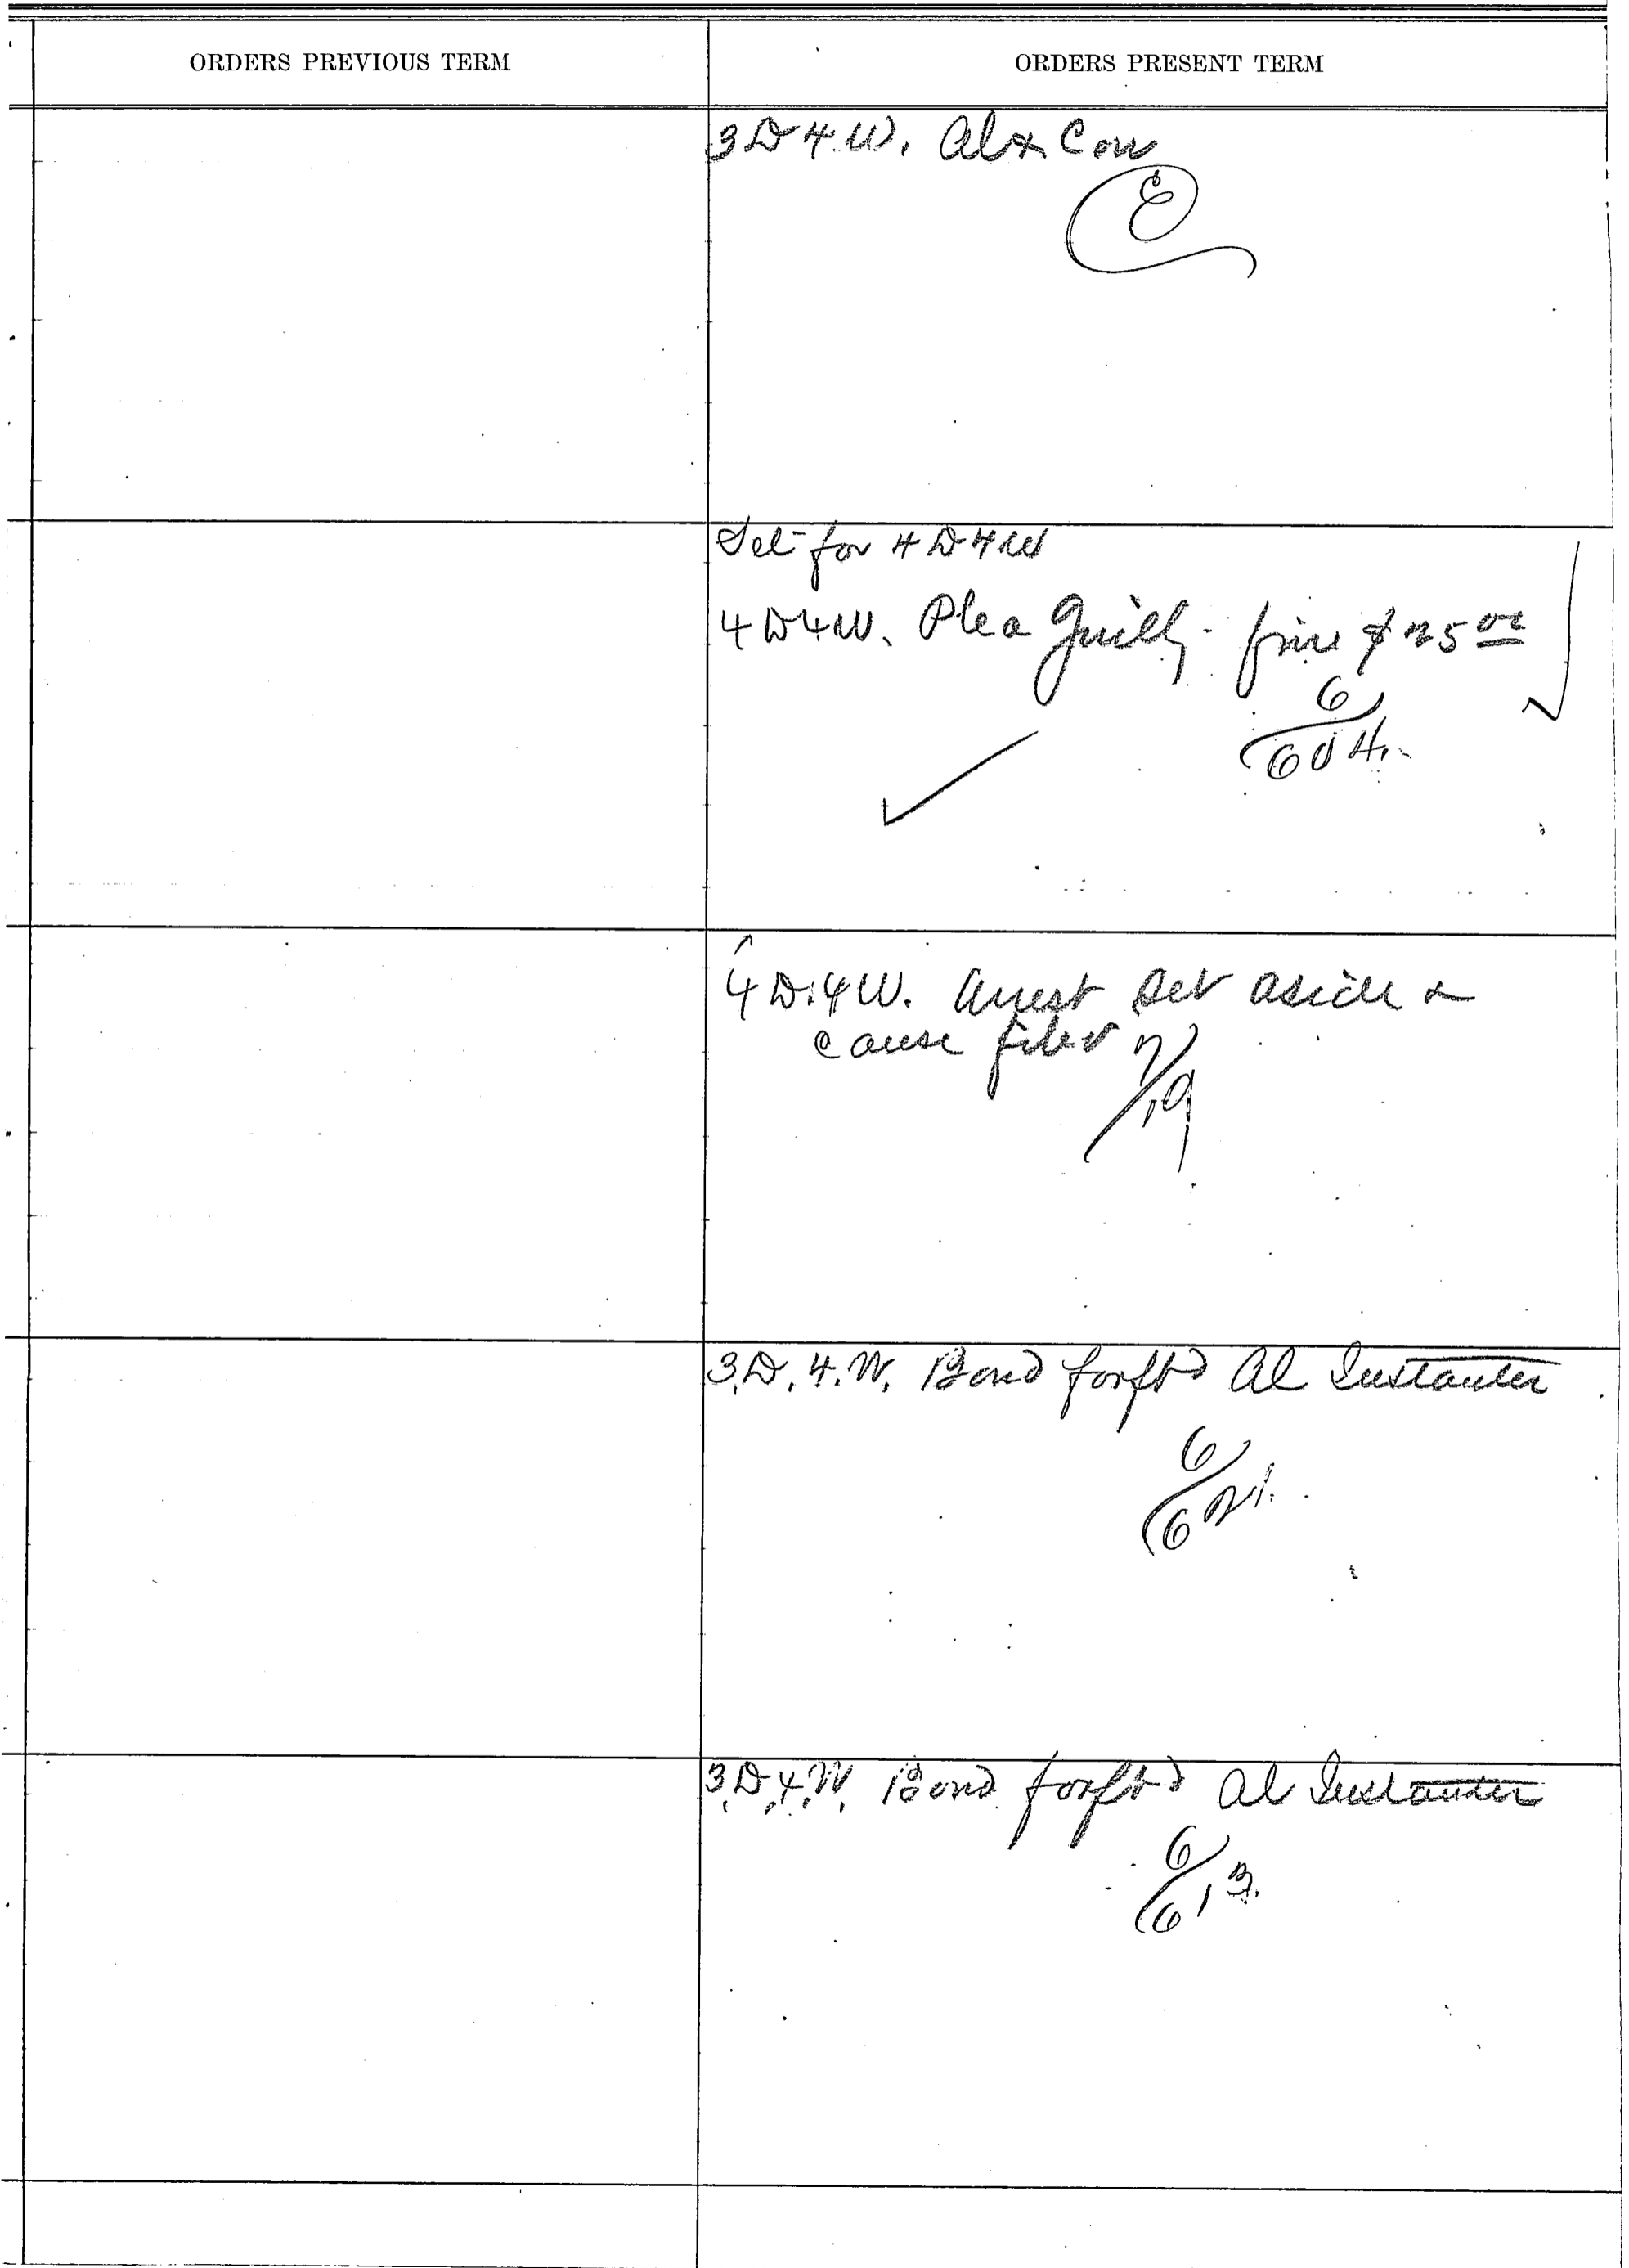 ORDERS PREVIOUS TERM
ORDERS PRESENT TERM
3 D 4 W. Al & Con
E
Set for 4 D 4 W
4 D 4 W. Plea Guilty - fine $25 00
6
604.
4 D. 4 W. Arrest Set aside &
cause filed
7/19
3. D. 4. W. Bond forftd Al Instanter
6
621.
3. D. 4. W. Bond forftd Al Instanter
6
613.